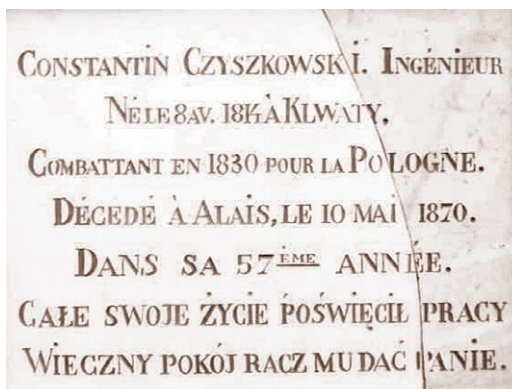 CONSTANTIN CZYSZKOWSKI. INGÉNIEUR
NÉ LE 8 AV. À KLWATY.
COMBATTANT EN 1830 POUR LA POLOGNE.
DÉCEDÉ À ALAIS, LE 10 MAI 1870.
DANS SA 57ÈME ANNÉE.
CAŁE SWOJE ŻYCIE POŚWIĘCIŁ PRACY
WIECZNY POKÓJ RACZ MU DAĆ PANIE.